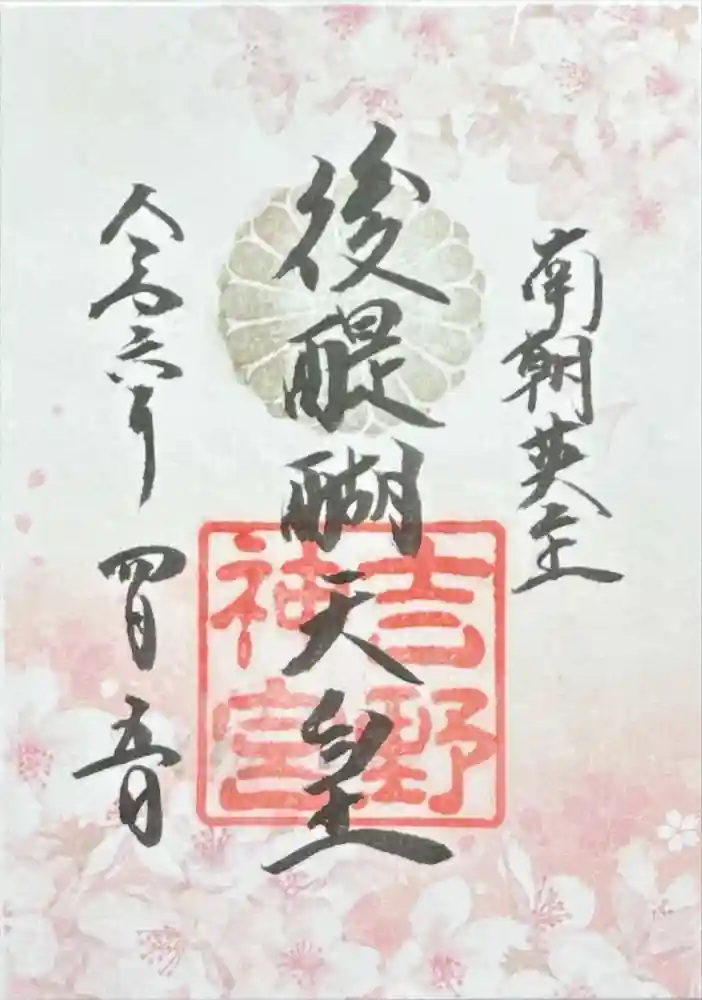 南朝英主
後醍醐天皇
吉野神宮
令和六年
四月
五日